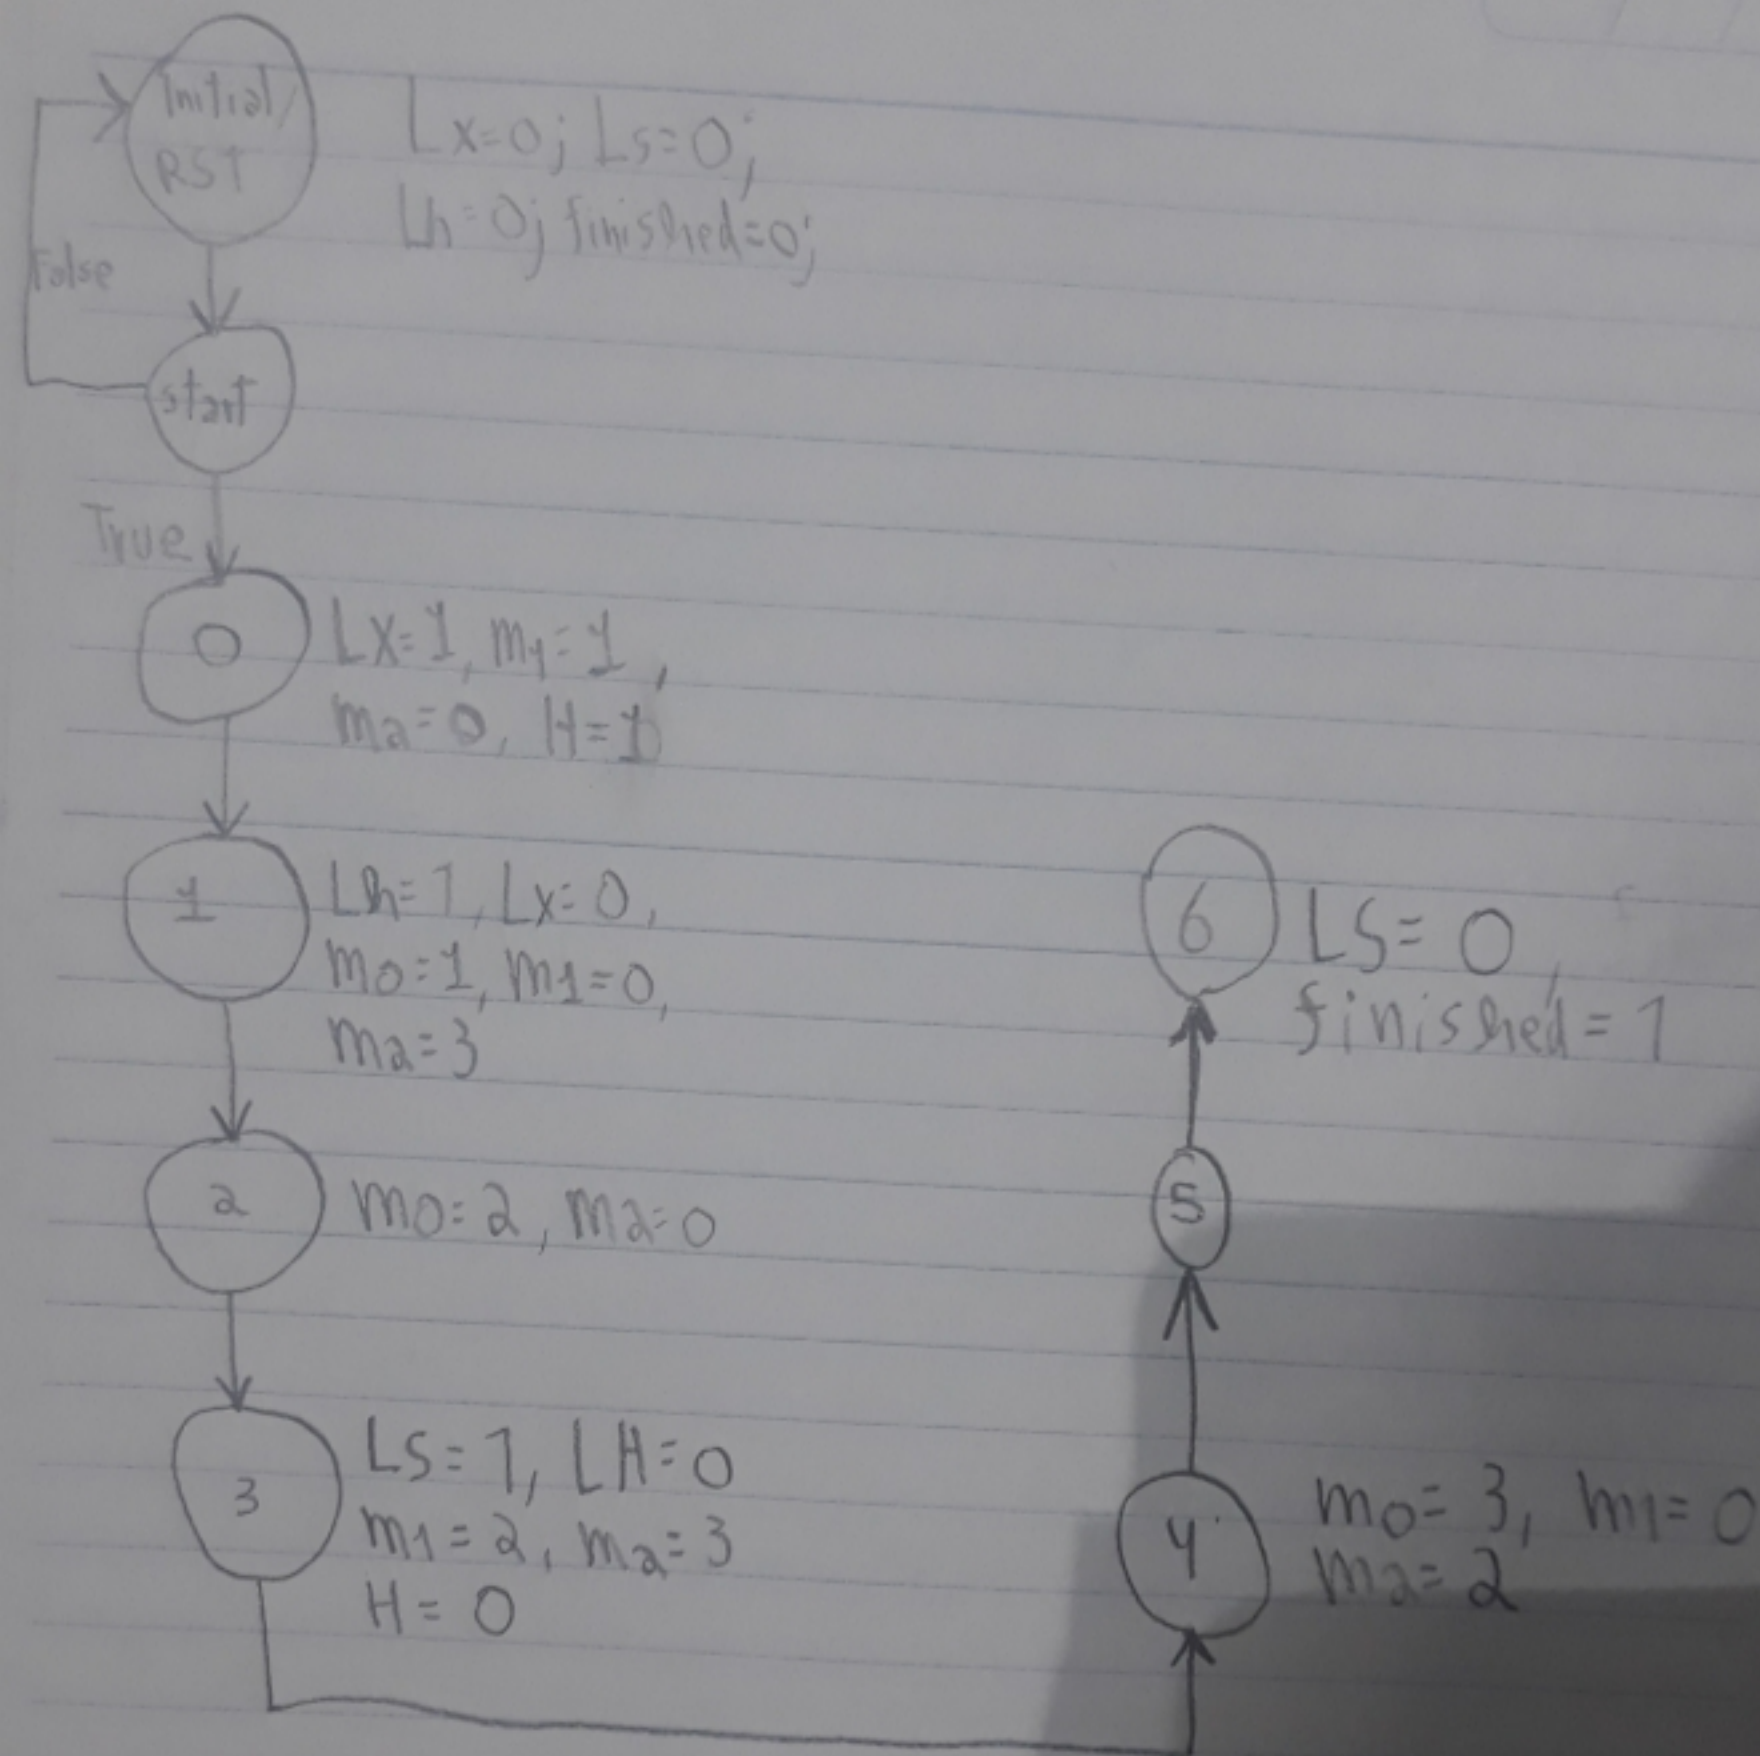 Initial/
RST
Lx=0; Ls=0;
Lh=0; finished=0;
False
start
True
0
Lx=1, m1=1,
m2=0, H=1
1
Lh=1, Lx=0,
m0=1, m1=0,
m2=3
2
m0=2, m2=0
3
LS=1, LH=0
m1=2, m2=3
H=0
6
LS=0,
finished=1
5
4
m0=3, m1=0
m2=2